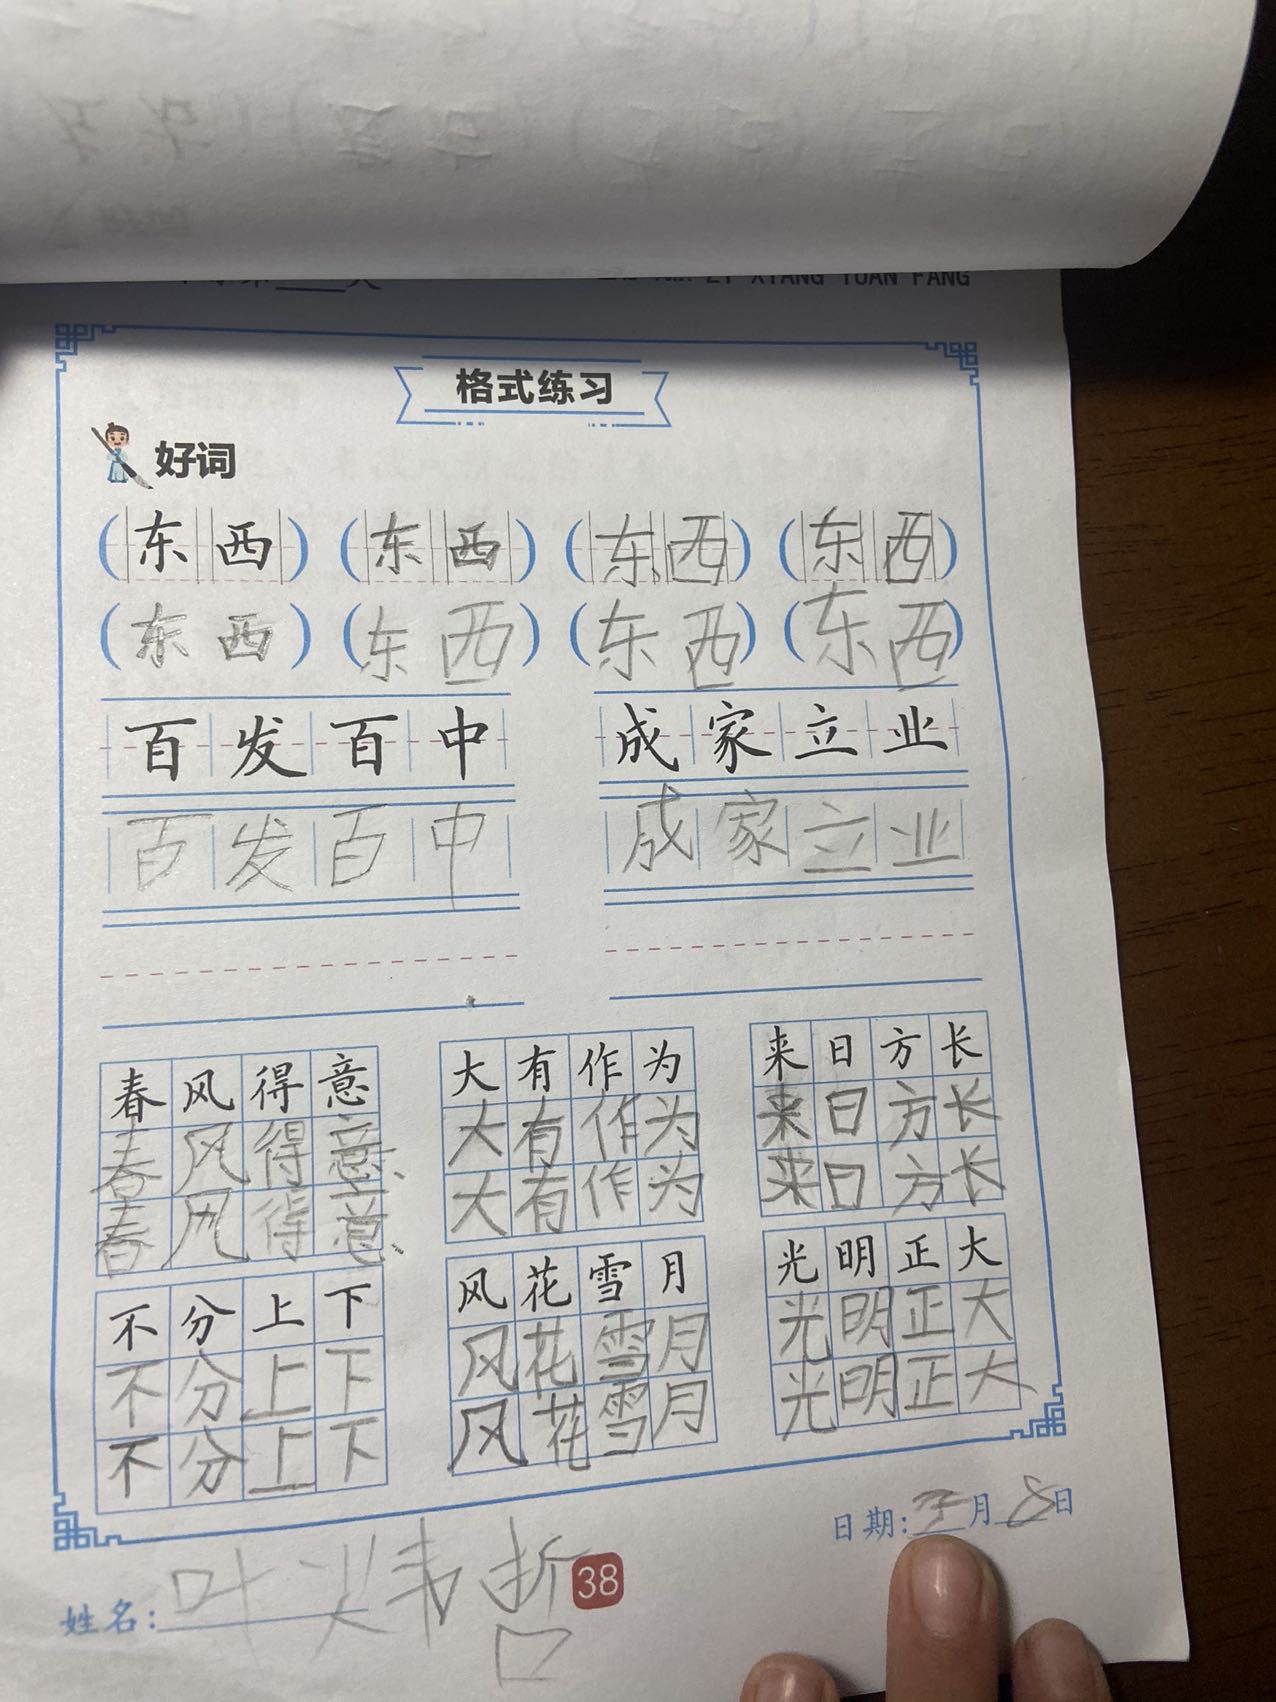 XIANG YUAN FANG
格式练习
好词
(东西) (东西) (东西) (东西)
(东西) (东西) (东西) (东西)
百发百中 成家立业
百发百中 成家立业
春风得意 大有作为 来日方长
春风得意 大有作为 来日方长
春风得意 大有作为 来日方长
不分上下 风花雪月 光明正大
不分上下 风花雪月 光明正大
不分上下 风花雪月 光明正大
日期: 月8日
姓名: 叶
38